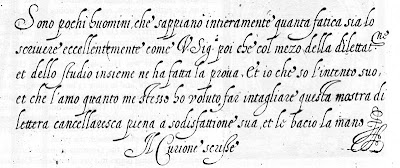 Sono pochi huomini, che sappiano intieramente quanta fatica sia lo
scrivere eccellentemente come V. Sig.ª poi che col mezo della dilettat.ne
et dello studio insieme ne ha fatta la prova. Et io che so l'intento suo,
et che l'amo quanto me stesso ho voluto far intagliare questa mostra di
lettera cancellaresca piena a sodisfattione sua, et le bacio la mano.
Il Curione scrisse